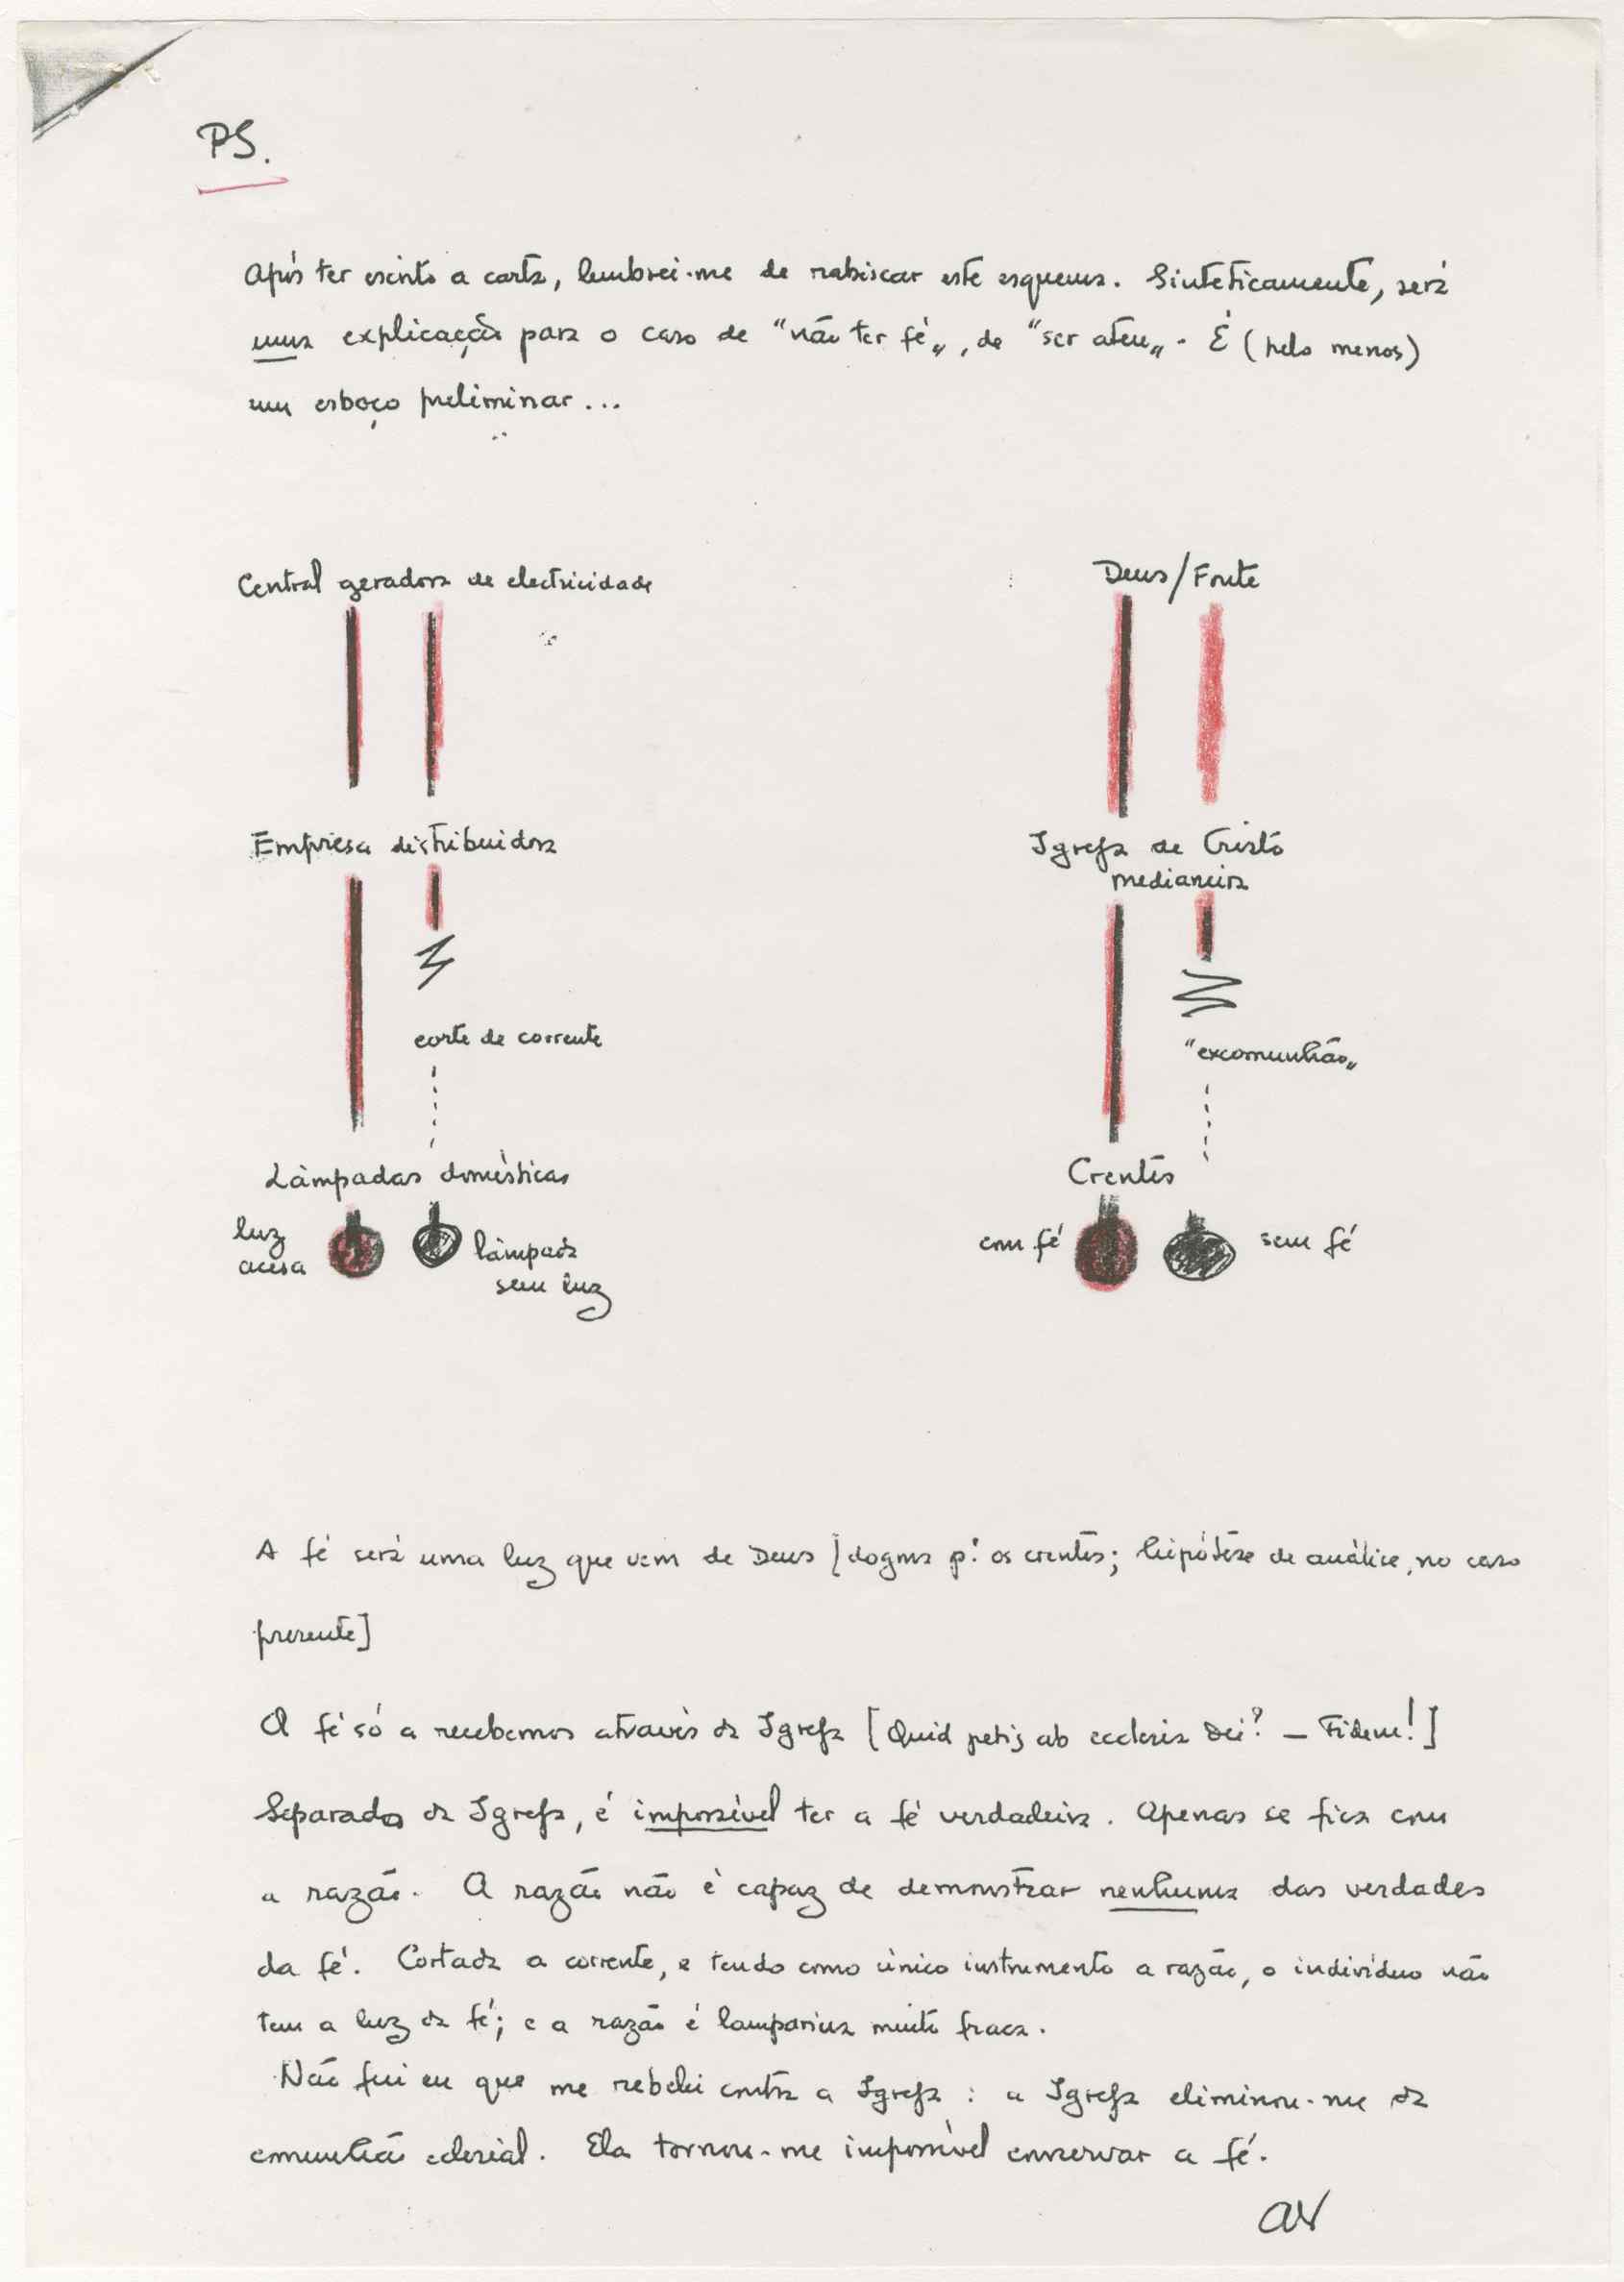 PS.
Após ter escrito a carta, lembrei-me de rabiscar este esquema. Sinteticamente, será
uma explicação para o caso de "não ter fé", de "ser ateu". É (pelo menos)
um esboço preliminar...
Central geradora de electricidade
Empresa distribuidora
corte de corrente
Lâmpadas domésticas
luz
acesa
lâmpada
sem luz
Deus/Fonte
Igreja de Cristo
medianeira
"excomunhão"
Crentes
com fé
sem fé
A fé será uma luz que vem de Deus [dogma p.ª os crentes; hipótese de análise, no caso
presente]
A fé só a recebemos através da Igreja [Quid petis ab ecclesia Dei? — Fidem!]
Separados da Igreja, é impossível ter a fé verdadeira. Apenas se fica com
a razão. A razão não é capaz de demonstrar nenhuma das verdades
da fé. Cortada a corrente, e tendo como único instrumento a razão, o indivíduo não
tem a luz da fé; e a razão é lamparina muito fraca.
Não fui eu que me rebelei contra a Igreja: a Igreja eliminou-me da
comunhão eclesial. Ela tornou-me impossível conservar a fé.
AV